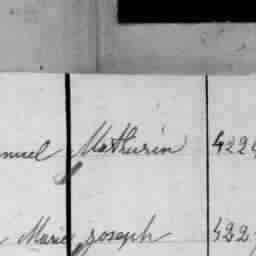 nuel Mathurin 4224
Marie Joseph 422